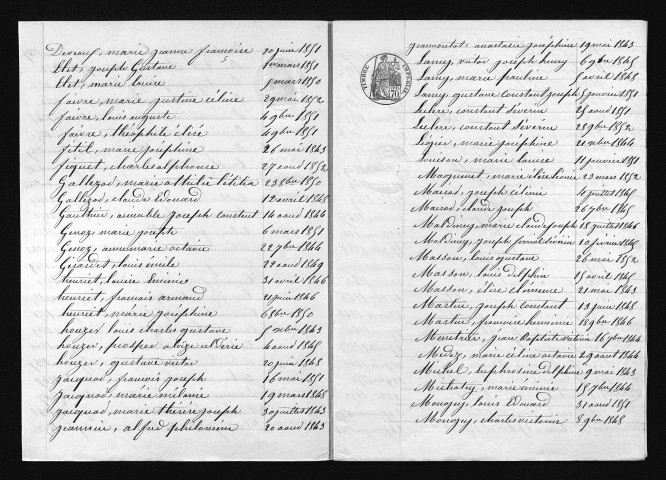 Devaux, marie jeanne françoise 20 juin 1851
Etet, joseph Gustave 1er mars 1851
Etet, marie louise 5 mars 1850
faivre, marie justine céline 29 mai 1852
faivre, louis auguste 4 9bre 1851
faivre, théophile élisé 4 9bre 1851
fétil, marie joséphine 26 mai 1843
figuet, charles alphonse 27 aout 1852
Gallezot, marie létitia 23 8bre 1850
Gallezot, claude Edouard 12 avril 1848
Gauthier, aimable joseph constant 14 aout 1844
Genoz, marie joseph 6 mars 1851
Genoz, anne marie octavie 22 9bre 1844
Girardet, louis émile 22 aout 1849
henriet, louise Eminie 31 avril 1846
henriet, françois armand 21 juin 1846
henriet, marie joséphine 6 8bre 1850
houzer, louis charles gustave 5 1843
houzer, prosper aloize 4 aout 1845
houzer, gustave victor 20 juin 1848
jacquot, françois joseph 16 mai 1851
jacquot, marie mélanie 19 mars 1848
jacquot, marie thérèse joseph 30 juillet 1843
jeannin, alfred philomin 20 aout 1843
jeanmontot, anastasie joséphine 19 mai 1843
Lamy, victor joseph henry 6 9bre 1845
Lamy, marie pauline 5 avril 1848
Lamy, gustave constant joseph 5 janvier 1851
Leclerc, constant séverin 25 aout 1851
Leclerc, constant Séverin 28 9bre 1852
Légier, marie joséphine 20 9bre 1844
marie louise 11 janvier 1851
Magnenet, marie 23 mars 1852
Mairot, joseph céline 4 juillet 1845
Mairot, claude joseph 26 7bre 1845
Maldiney, marie claude joseph 18 juillet 1846
Maldiney, joseph 10 février 1845
Masson, louis gustave 26 mai 1852
Masson, louis delphin 15 avril 1845
Masson, élise clémence 21 mai 1843
Martin, joseph constant 13 juin 1848
Martin, françoise herminie 18 9bre 1846
jean Baptiste 16 7bre 1844
marie céline octavie 29 aout 1844
Michel, euphrosine delphine 9 mai 1843
marie eminie 15 7bre 1844
Mougey, louis Edouard 31 aout 1851
Mougey, charles victorin 8 9bre 1848
TIMBRE IMPÉRIAL